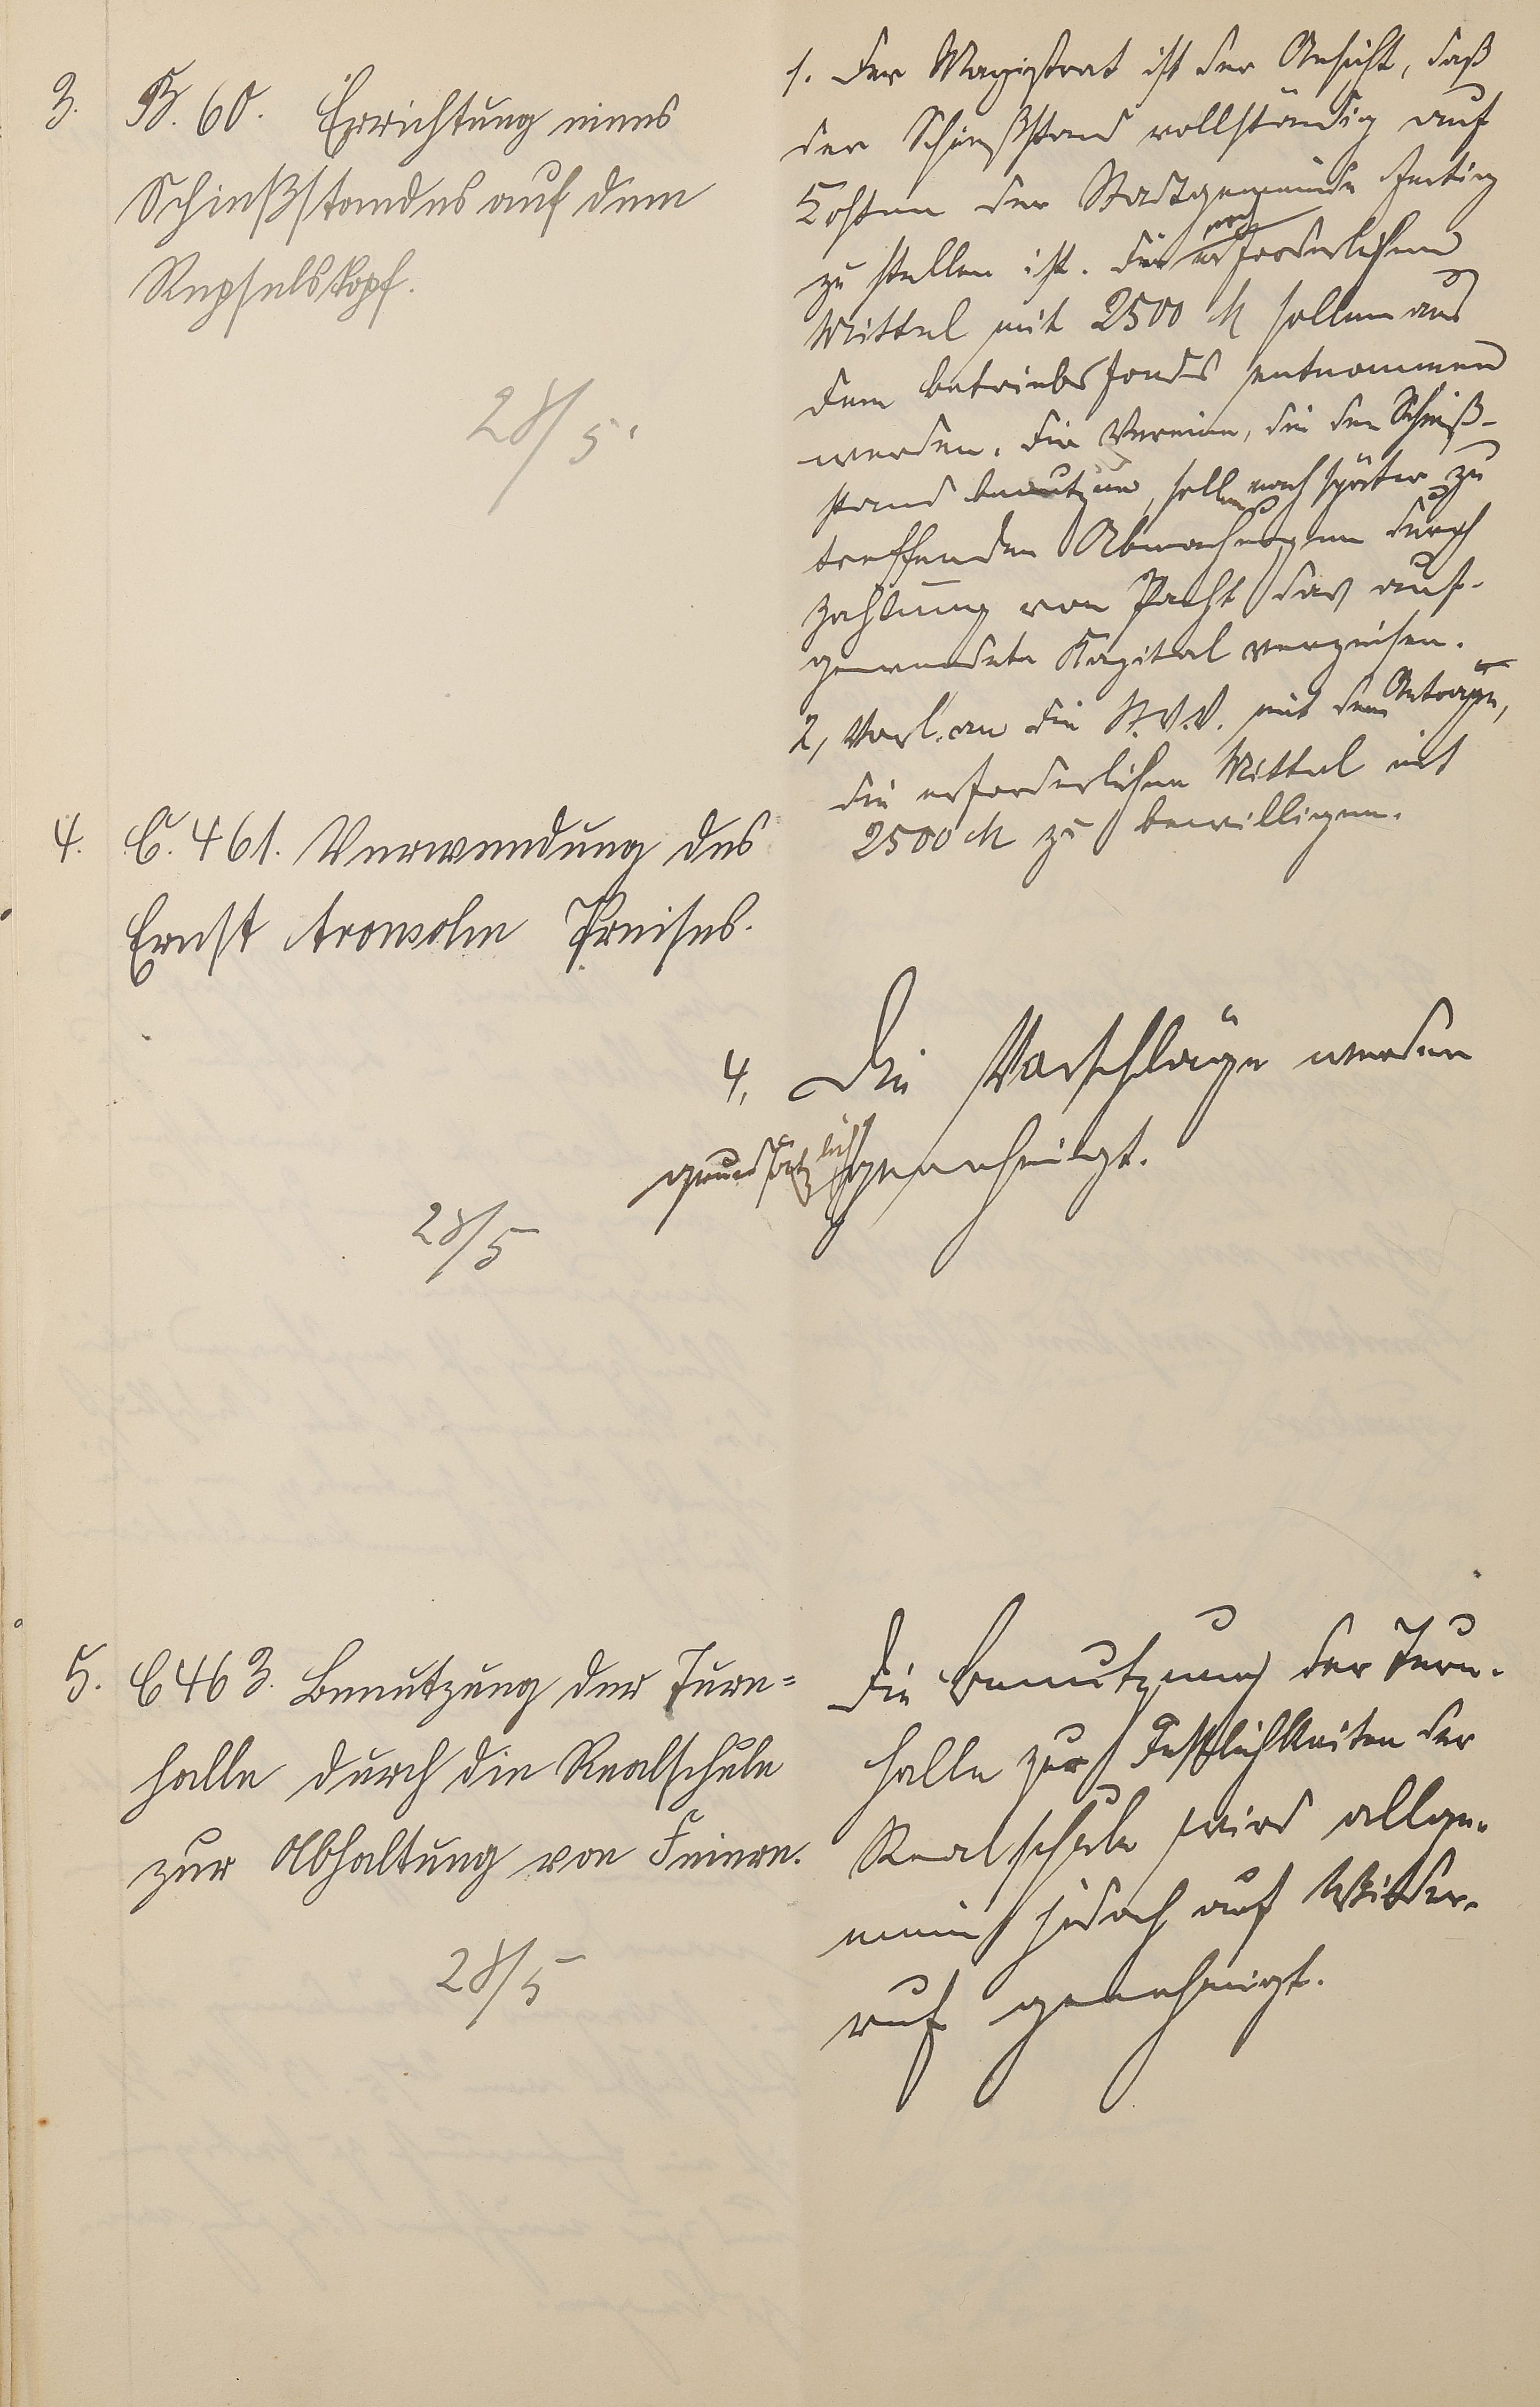 3. B. 60. Errichtung eines
Schießstandes auf dem
Repselskopf.
28/5.
1. Der Magistrat ist der Ansicht, daß
der Schießstand vollständig auf
Kosten der Stadtgemeinde fertig
zu stellen ist. Die noch erforderlichen
Mittel mit 2500 M sollen aus
dem Betriebsfonds entnommen
werden. Die Vereine, die den Schieß-
stand benutzen, sollen nach später zu
treffenden Abmachungen durch
Zahlung von Pacht das auf-
gewendete Kapital verzinsen.
2, Vorl. an die St.V.V. mit dem Antrage,
die erforderlichen Mittel mit
2500 M zu bewilligen.
4. C. 461. Verwendung des
Ernst Preises.
28/5
4. Die Vorschläge werden
grundsätzlich genehmigt.
5. C 463. Benutzung der Turn=
halle durch die Realschule
zur Abhaltung von Feiern.
28/5
Die Benutzung der Turn-
halle zur Festlichkeiten der
Realschule wird allge-
mein jedoch auf Wider-
ruf genehmigt.